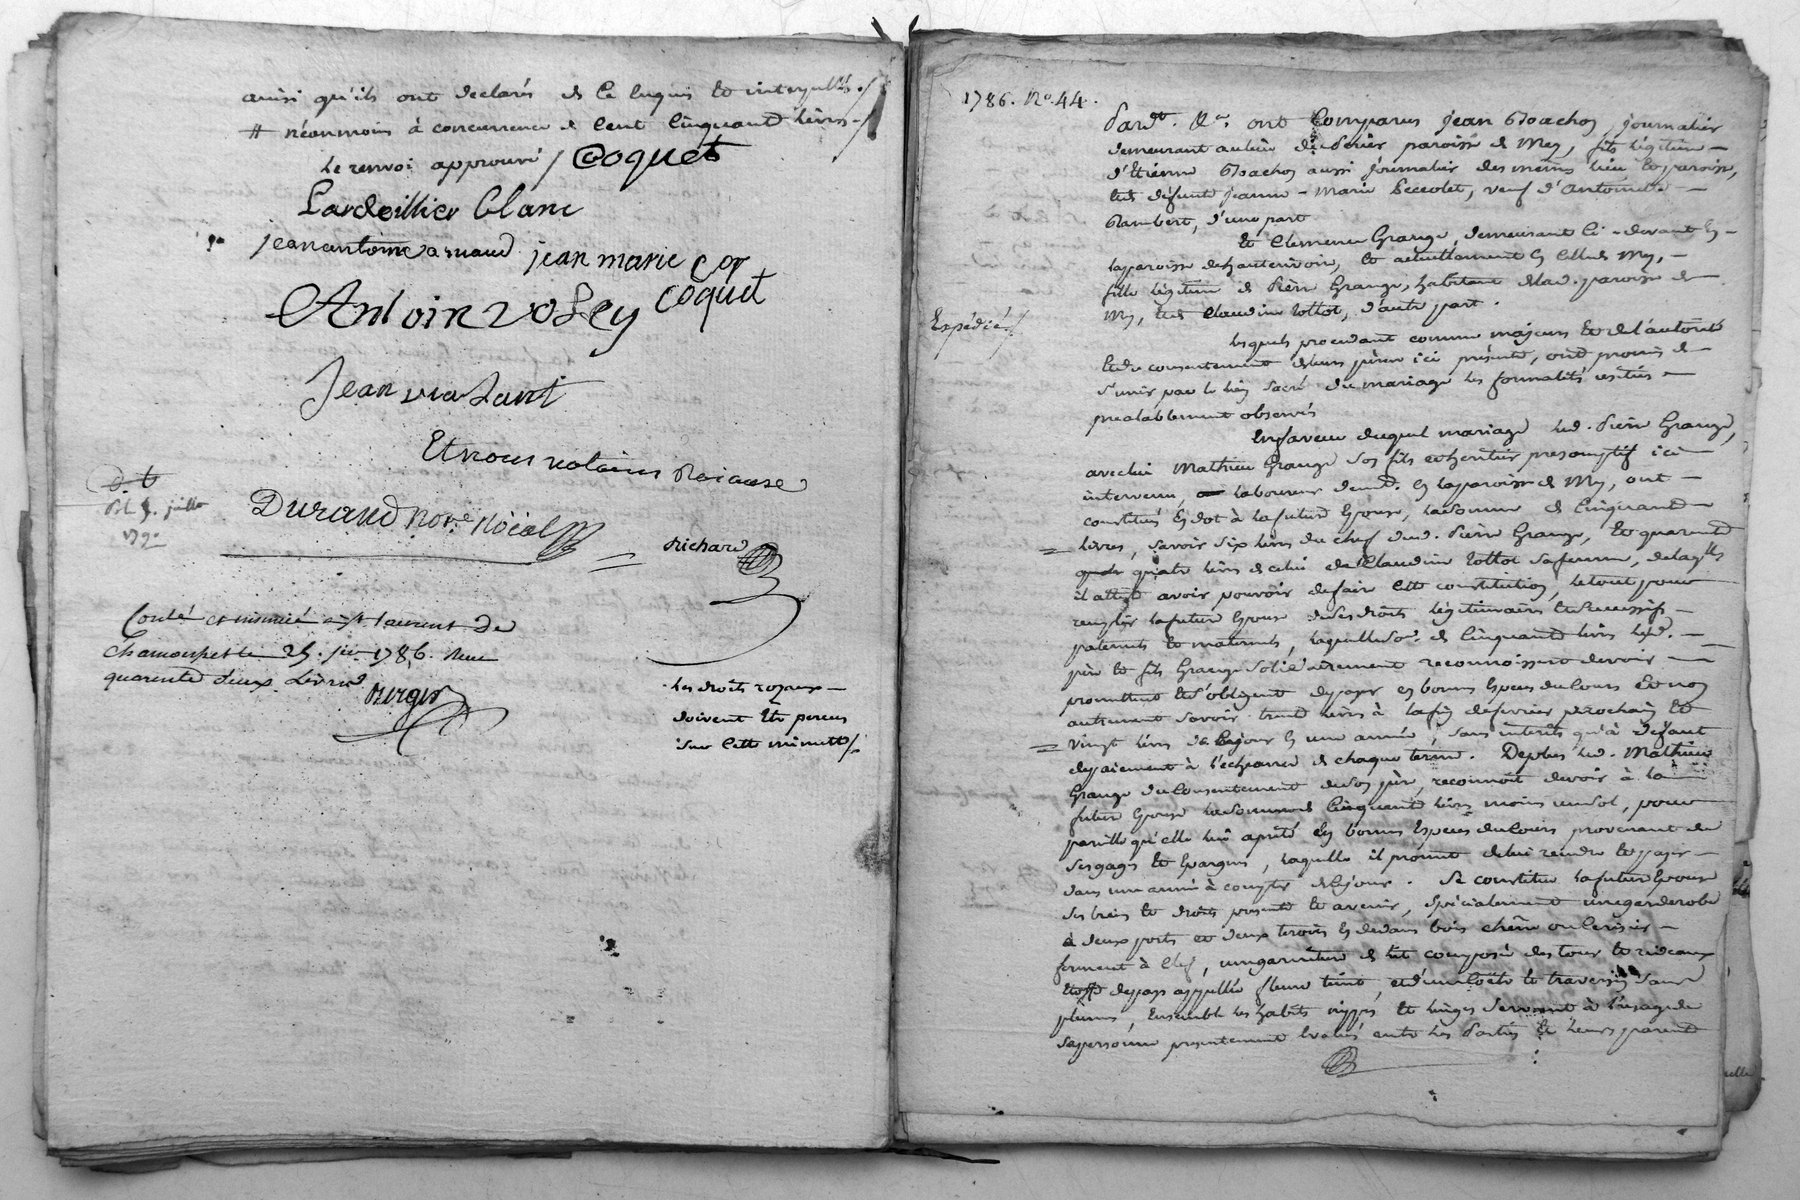 ainsi qu'ils ont declarés de ce enquis et interpellés./
# néanmoins à concurrence de cent cinquante livres/
le renvoi approuvé / Coquet
Lardeillier blanc
jean antoine arnaud jean marie
coquet
Antoin
Jean
Et nous notaires Roiaux
D.t
juillet
Durand no.re Roial
Richard
Conlé et insinué a st laurent de
Chamousset le 25. 1786. Reçu
quarente deux Livres
Berger
Les droits royaux
doivent être perçus
sur cette minutte/.
1786. No. 44.
Pard.t &.a ont comparus jean journalier
demeurant au lieu du paroisse de Mey, fils légitime
d'Etienne aussi journalier des mêmes lieu et paroisse,
et de défunte jeanne-Marie veuf d'antoinette
Rambert, d'une part
Et Clemence Grange, demeurant ci-devant en
la paroisse de hauterivoire, et actuellement en celle de Mey,
fille légitime de Pierre Grange, habitant de lad. paroisse de
Mey, et de Claudine d'autre part.
Expédié/
lesquels procedant comme majeurs et de l'autorité
et du consentement de leurs pères ici présents, ont promis de
s'unir par le lien sacré du mariage les formalités
prealablement observés
En faveur duquel mariage led. Pierre Grange,
avec lui Mathieu Grange son fils et heritier presomptif ici
intervenu, laboureur demt. en la paroisse de Mey, ont
constitués en dot à la future Epouse, la somme de cinquante
livres, savoir six livres du chef dud. Pierre Grange, et quarente
quatre livres de celui de Claudine sa femme, de laq.lle
il atteste avoir pouvoir de faire cette constitution, le tout pour
remplir la future Epouse de ses droits légitimaires et Successifs
paternels et maternels, laquelle so.e de cinquante livres lesd.
père et fils Grange solidairement reconnoissent devoir
promettent et s'obligent de payer en bonnes Especes du cours et non
autrement savoir trente livres à la fin de fevrier prochain et
vingt livres de ce jour en une année, sans interêts qu'à défaut
de paiement à l'echeance de chaque terme. De plus led. Mathieu
Grange du consentement de son père, reconnoit devoir à la
future Epouse la somme de cinquante livres moins un sol, pour
pareille qu'elle lui a prêté en bonnes Especes du cours provenant de
ses gages et Epargnes, laquelle il promet de lui rendre et payer
dans une année à compter de ce jour. Se constitue la future Epouse
ses biens et droits presents et avenir, spécialement une garderobe
à deux portes et deux tiroirs en dedans bois chêne ou cerisier
fermant à clef, une garniture de lit composée des tour et rideaux
Etoffe de pays appellée fleuret teint, et d'un coëte et traversin sans
plumes, Ensemble les habits nippes et linges servant à l'usage de
sa personne presentement évalués entre les Parties et leurs parents